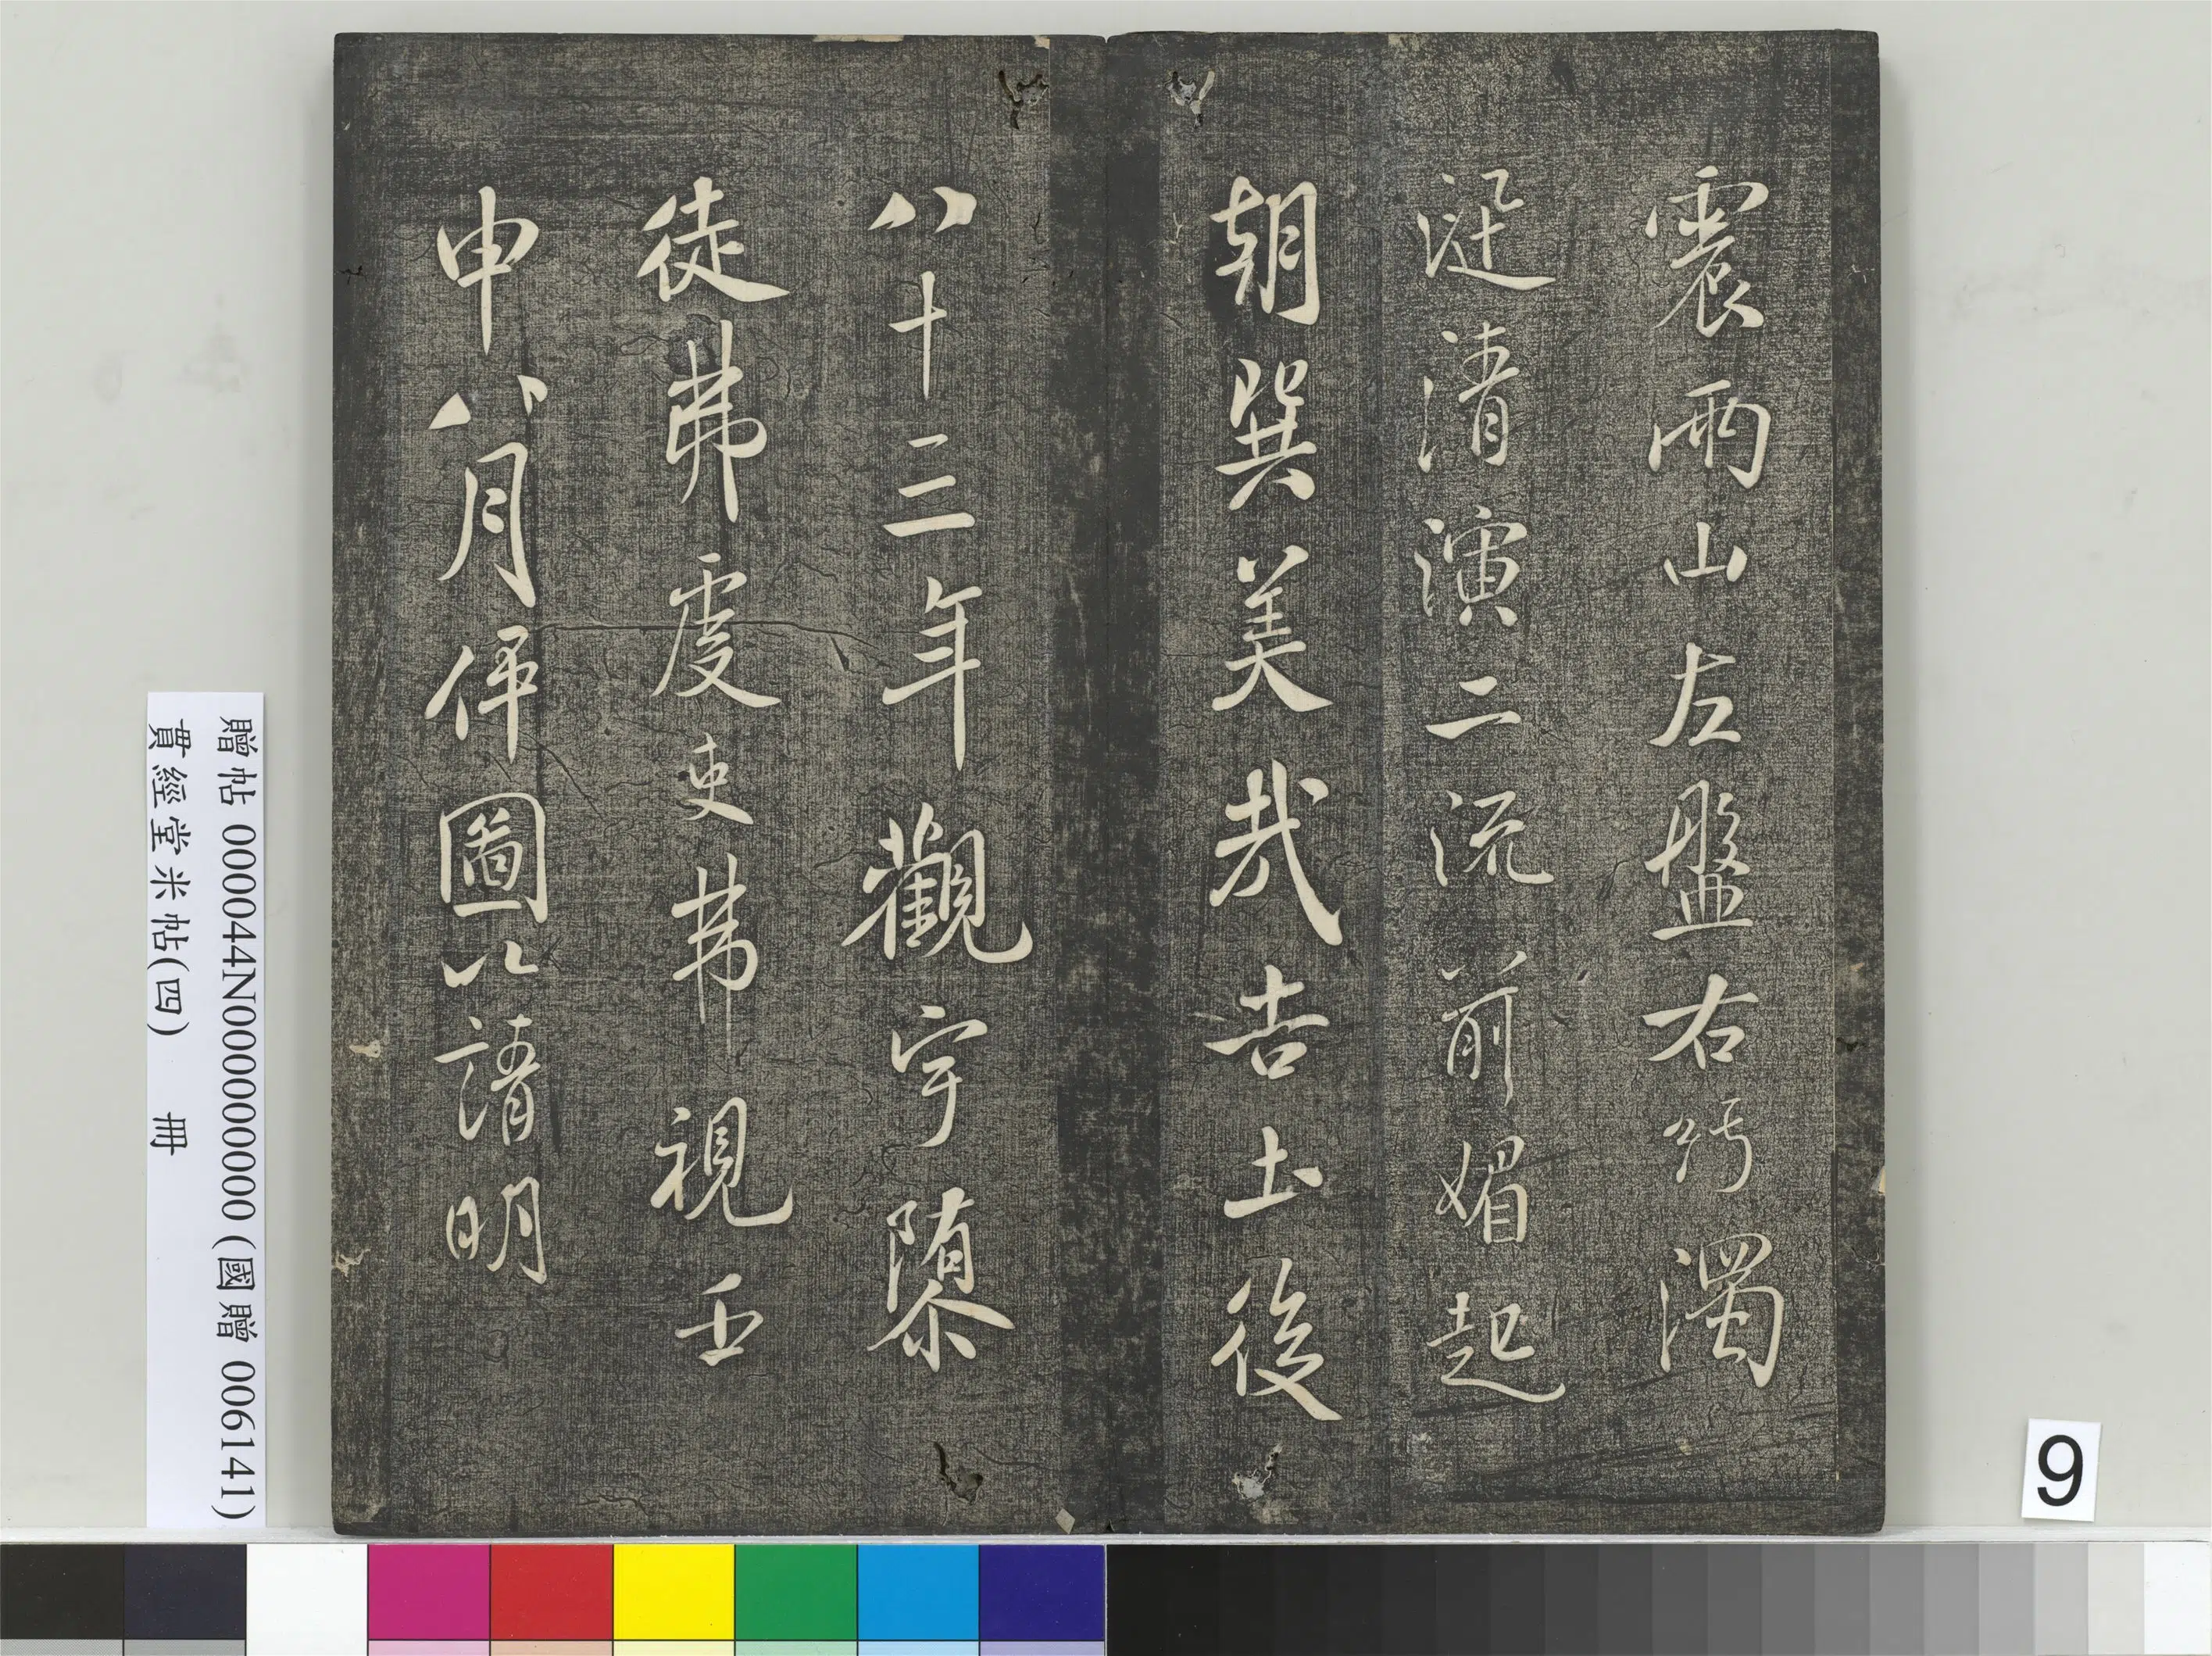 震兩山左盤右紆濁
涎清演二流前媚起
朝巽美哉吉土後
八十三年觀宇隳
徒弗虔吏弗視壬
申八月伻圖以請明
贈帖 000044N000000000 (國贈 006141)
貫經堂米帖(四) 冊
9